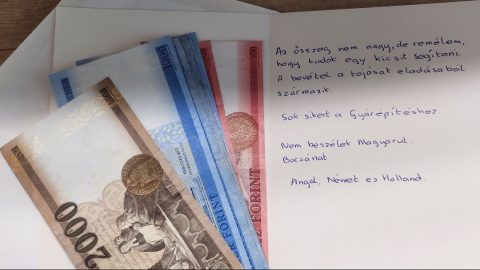 Az összeg nem nagy, de remélem,
hogy tudok egy kicsit segíteni.
A bevétel a tojásat eladásából
származik.
Sok sikert a Gyárépítéshez.
Nem beszélek Magyarul.
Bocsánat.
Angol, Német es Holland.
2000
FORINT
FORINT